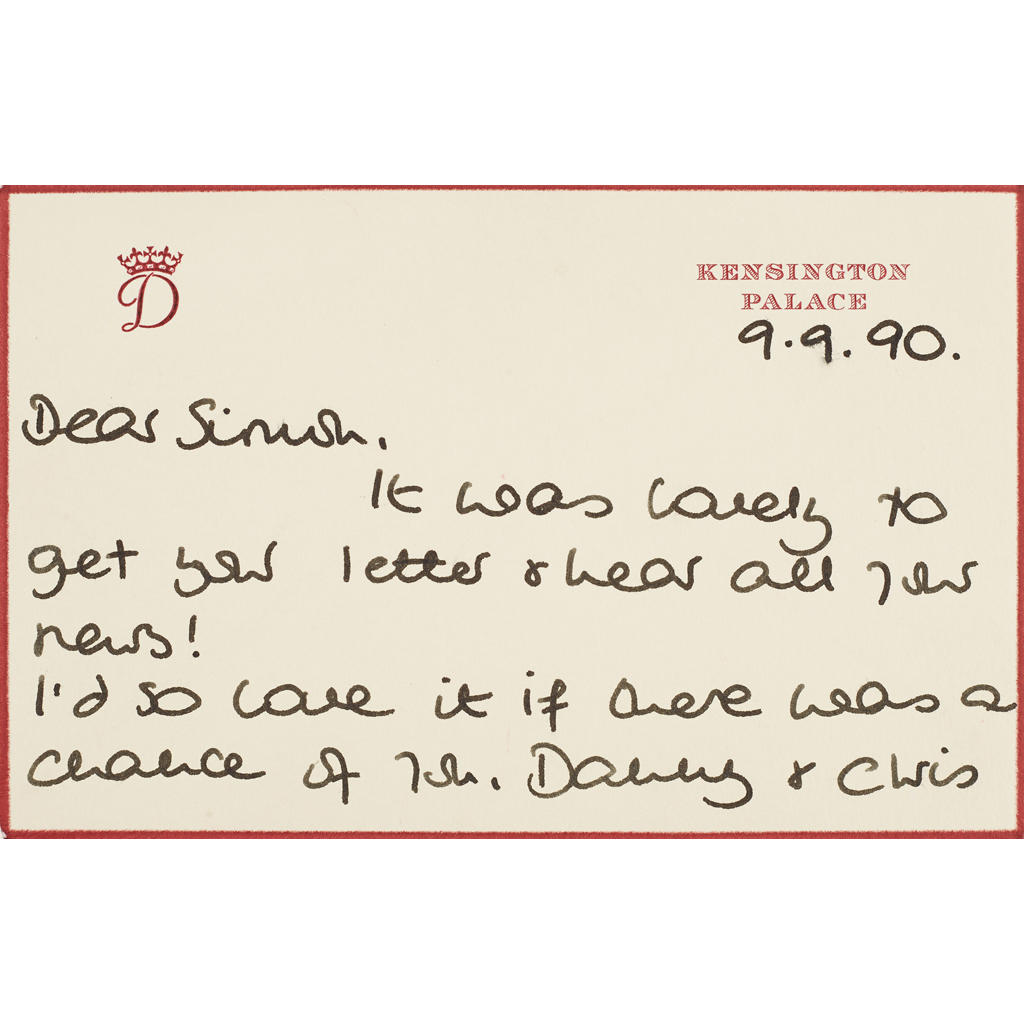 D
KENSINGTON
PALACE
9.9.90.
Dear Simon.
It was lovely to
get your letter & hear all your
news!
I'd so love it if there was a
chance of you. Danny & Chris